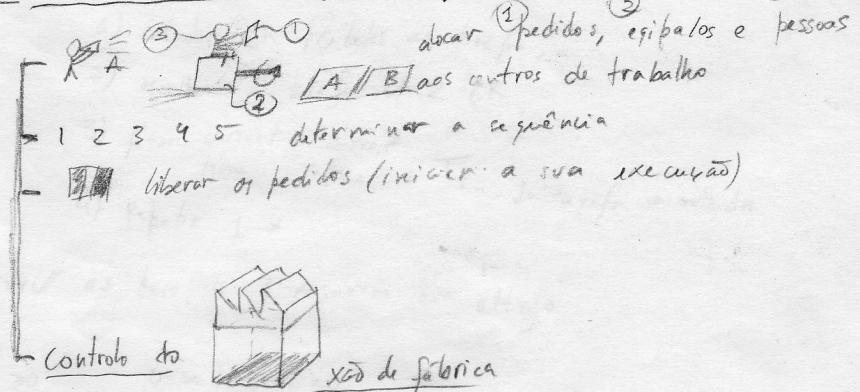 ① ②
alocar pedidos, eqipatos e pessoas
③ ① A
② A B aos centros de trabalho
1 2 3 4 5 determinar a sequência
liberar os pedidos (iniciar a sua execução)
controlo do xão de fábrica